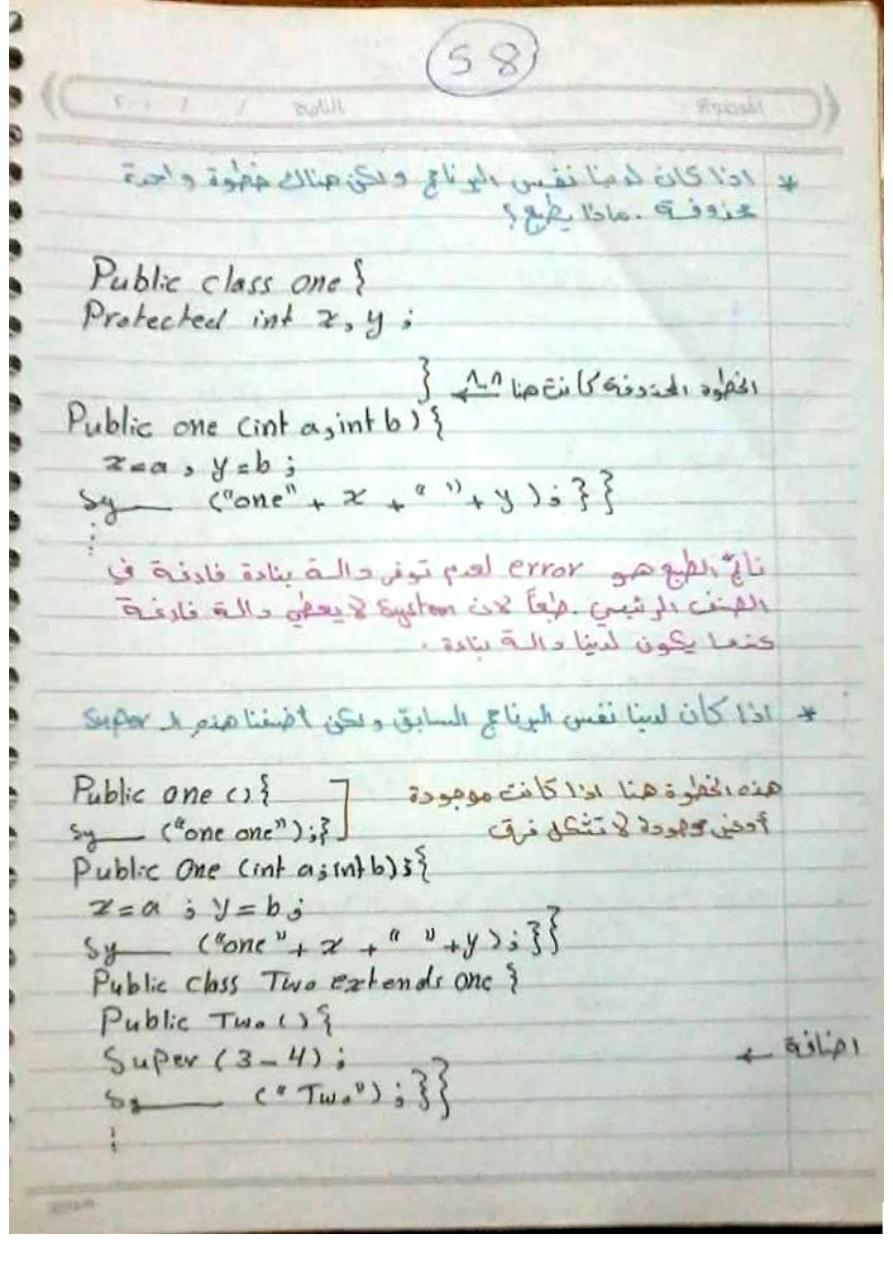 58
التاريخ / / ٢٠٠
الموضوع
* اذا كان لدينا نفس البرنامج ولكن هناك خطوة واحدة
محذوفة . ماذا يطبع ؟
Public class one {
Protected int x, y ;
} الخطوه المحذوفة كانت هنا
Public one (int a, int b) {
x=a , y=b ;
Sy___ ("one" + x + " " + y ) ; } }
ناتج الطبع هو error لعدم توفر دالة بنادة فارغة في
الصنف الرئيسي . طبعاً لان System لا يعطي دالة فارغة
عندما يكون لدينا دالة بنادة .
* اذا كان لدينا نفس البرنامج السابق ولكن اضفنا هذه الـ Super
Public one () { هذه الخطوة هنا اذا كانت موجودة
Sy___ ("one one") ; } أو غير موجودة لا تشكل فرق
Public One (int a ; int b) ; {
x = a ; y = b ;
Sy___ ("one" + x + " " + y ) ; } }
Public class Two extends one {
Public Two () {
Super (3 - 4) ; ← اضافة
Sy___ ("Two") ; } }
⋮